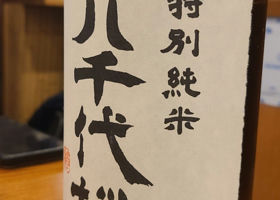 特別純米
八千代